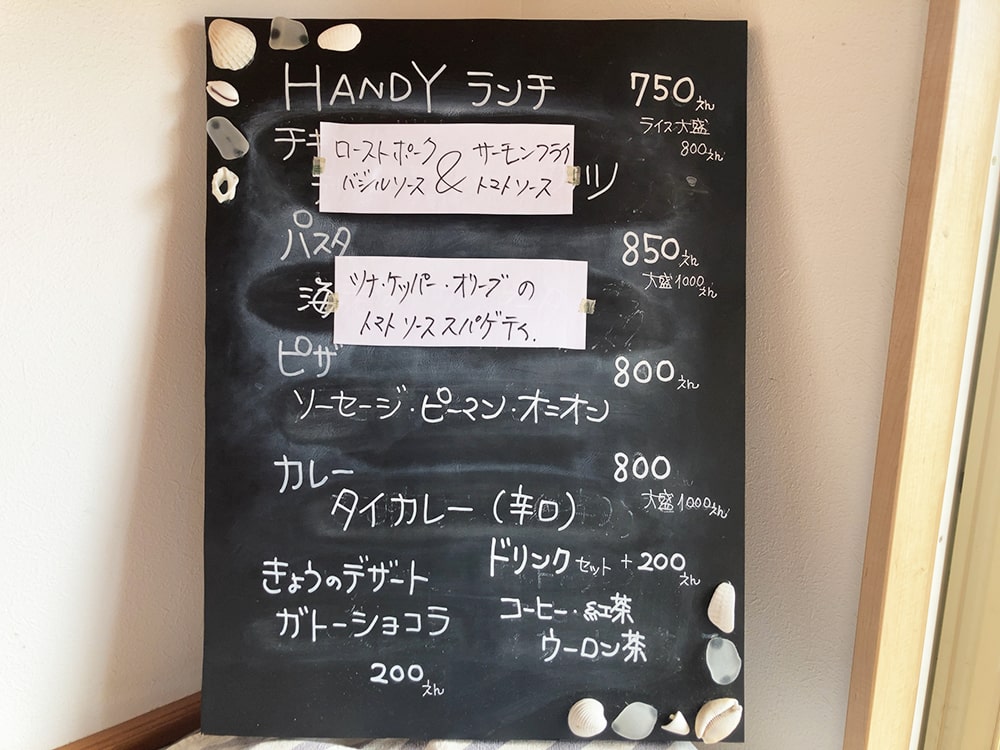 HANDY ランチ 750えん
ライス大盛
800えん
チキ
ローストポーク & サーモンフライ
バジルソース トマトソース
ツ
パスタ 850えん
大盛1000えん
海
ツナ・ケッパー・オリーブの
トマトソーススパゲティ.
ピザ 800えん
ソーセージ・ピーマン・オニオン
カレー 800
大盛1000えん
タイカレー(辛口)
ドリンクセット +200えん
コーヒー・紅茶
ウーロン茶
きょうのデザート
ガトーショコラ
200えん